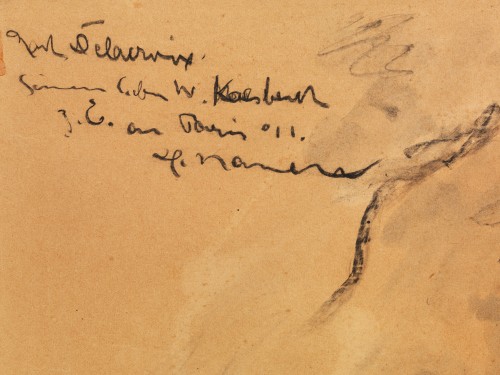 Nach Delacroix.
Seinem lieben W. Kolsbeck
z. E. an Paris '11.
H. Nauen